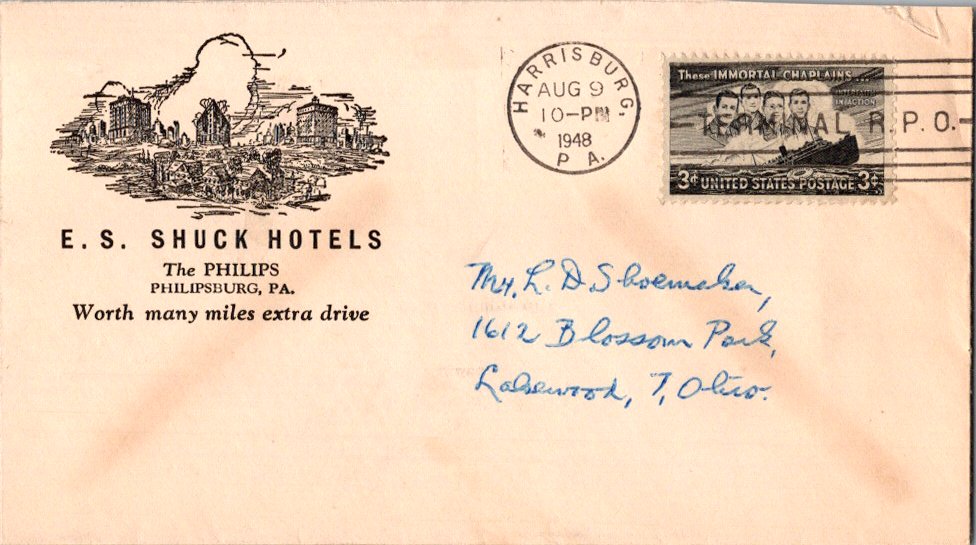 E. S. SHUCK HOTELS
The PHILIPS
PHILIPSBURG, PA.
Worth many miles extra drive
HARRISBURG,
AUG 9
10-PM
1948
PA.
TERMINAL R.P.O.
These IMMORTAL CHAPLAINS...
INTERFAITH
IN ACTION
3¢ UNITED STATES POSTAGE 3¢
Mr. L. D. Shoemaker,
1612 Blossom Park,
Lakewood, 7, Ohio.